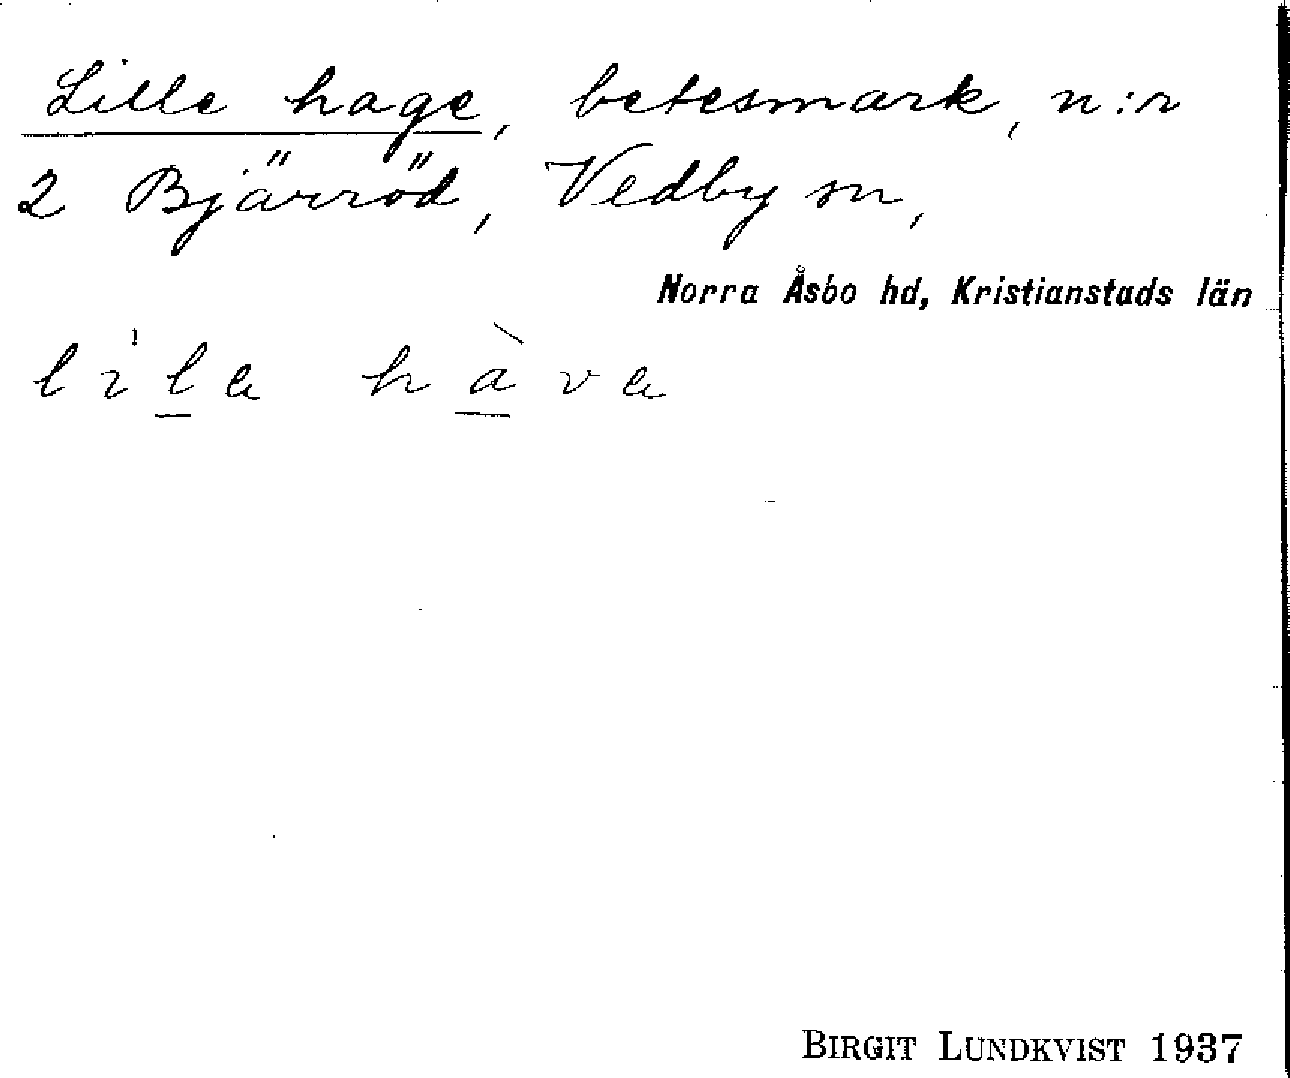 Lille hage, betesmark, n:r
2 Bjärröd, Vedby sn,
Norra Åsbo hd, Kristianstads län
lila hàva
BIRGIT LUNDKVIST 1937